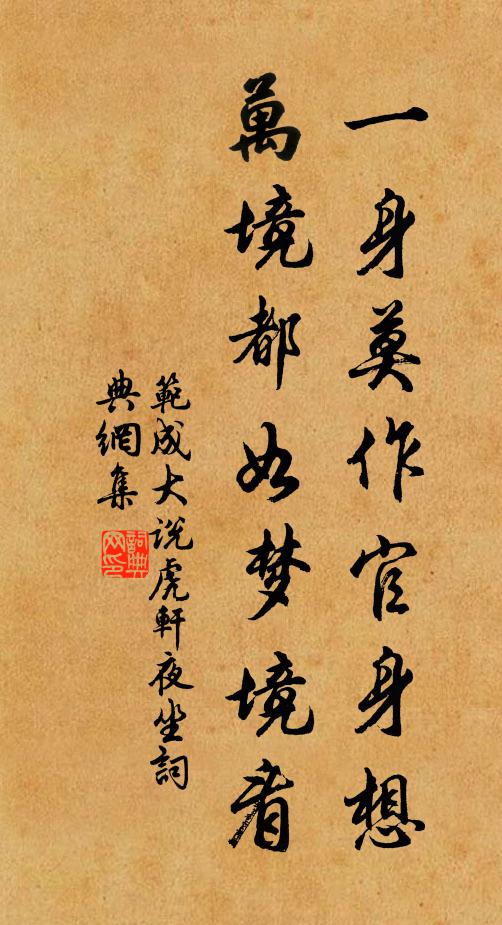 一身莫作官身想
萬境都如梦境看
範成大说虎軒夜坐詞
典網集
詞典網印